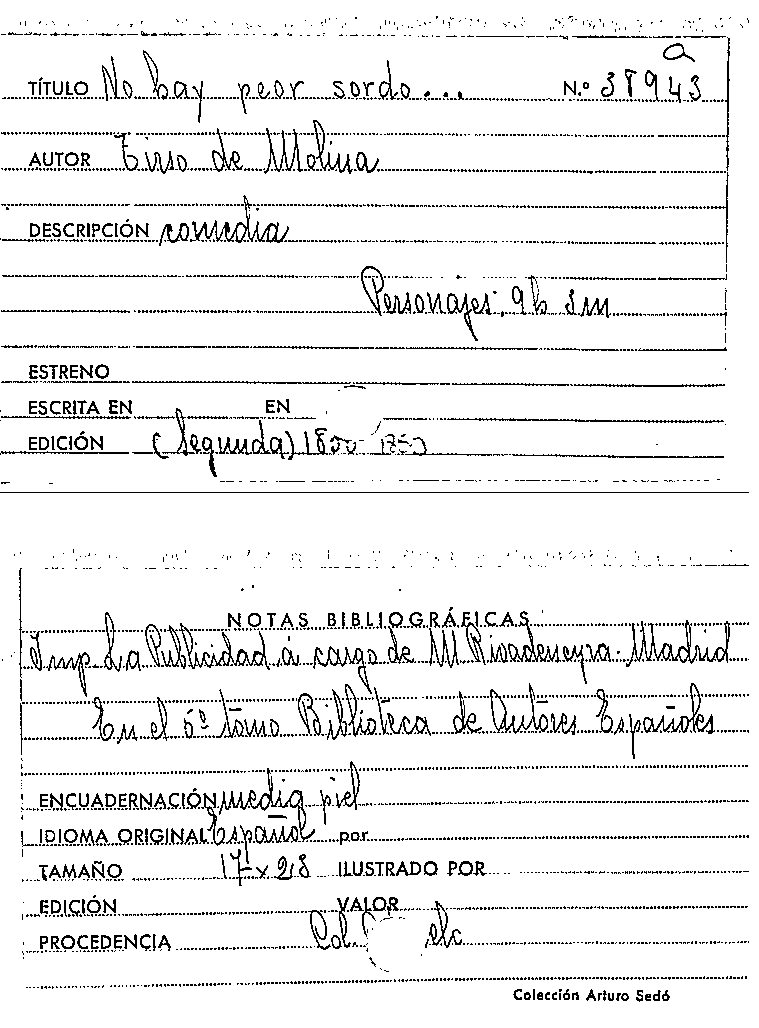 a
TÍTULO No hay peor sordo... N.º 38943
AUTOR Tirso de Molina
DESCRIPCIÓN comedia
Personajes: 9h 3m
ESTRENO
ESCRITA EN EN
EDICIÓN (Segunda) 1850
NOTAS BIBLIOGRÁFICAS
Imp. La Publicidad á cargo de M Rivadeneyra. Madrid
En el 5º tomo Biblioteca de Autores Españoles
ENCUADERNACIÓN media piel
IDIOMA ORIGINAL Español por
TAMAÑO 17 x 28 ILUSTRADO POR
EDICIÓN VALOR
PROCEDENCIA Col.
Colección Arturo Sedó